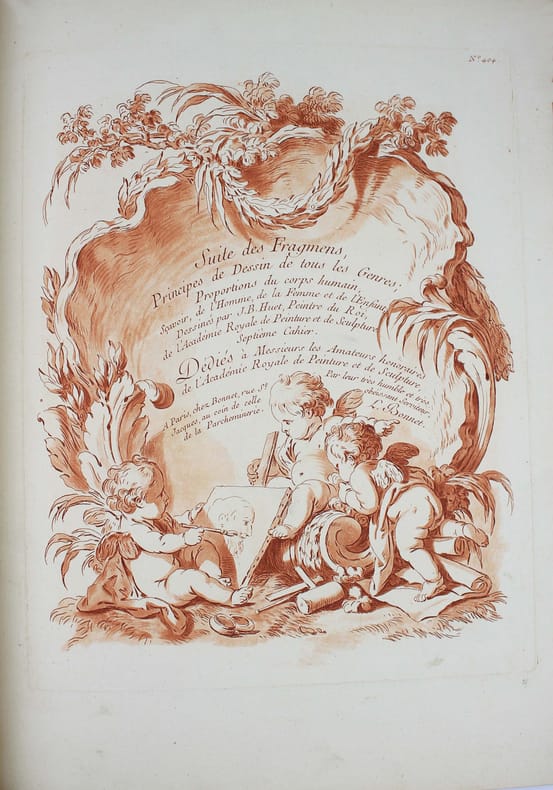 N.º 404.
Suite des Fragmens,
Principes de Dessin de tous les Genres;
Proportions du corps humain,
Sçavoir, de l'Homme, de la Femme et de l'Enfant
Dessinés par J.B. Huet, Peintre du Roi,
de l'Académie Royale de Peinture et de Sculpture.
Septieme Cahier.
Dédiés à Messieurs les Amateurs honoraires
de l'Académie Royale de Peinture et de Sculpture,
Par leur très humble et très
obeissant Serviteur,
L. Bonnet.
A Paris, chez Bonnet, rue St
Jacques, au coin de celle
de la Parcheminerie.